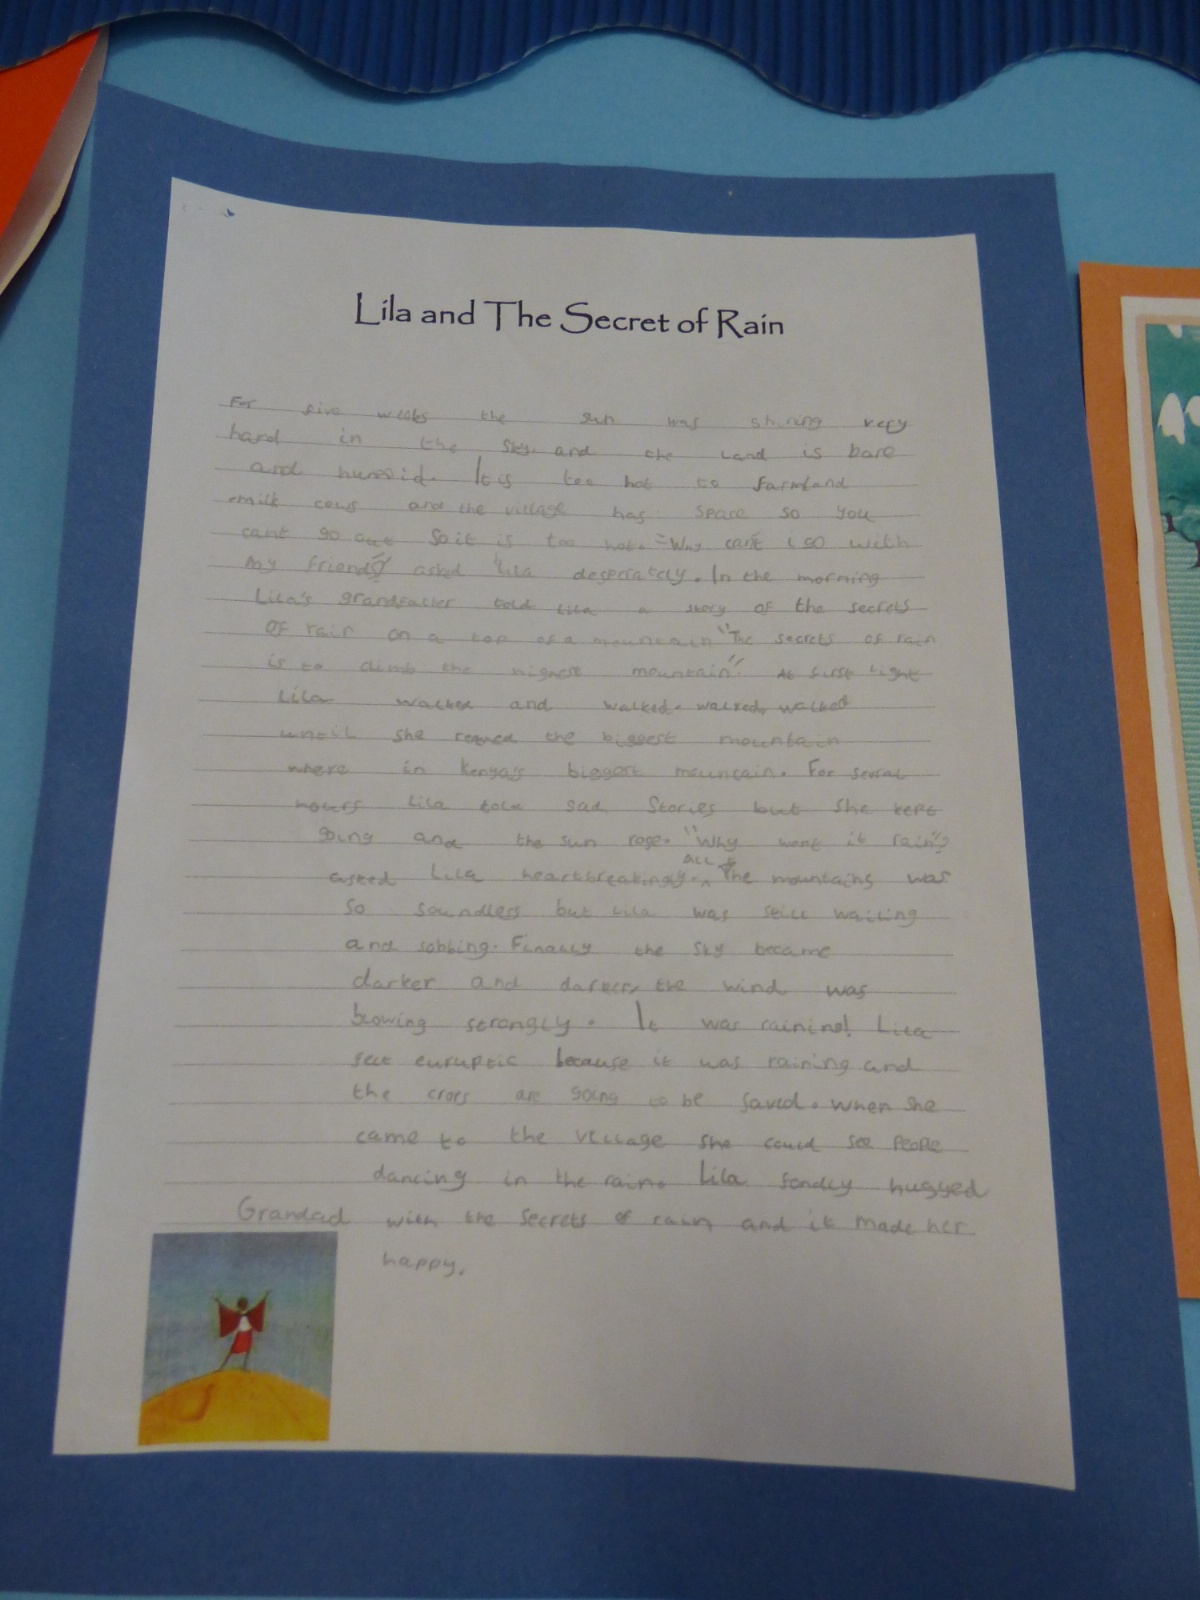 Lila and The Secret of Rain
For five weeks the sun was shining very
hard in the sky. and the land is bare
and humid. It is too hot to farmland
emilk cows and the village has space so you
cant go out So it is too hot. "Why can't i go with
my friend?" asked Lila desperately. In the morning
Lila's grandfather told Lila a story of the secrets
of rain on a top of a mountain "The secrets of rain
is to climb the highest mountain". At first light
Lila walked and walked. walked, walked
until she the biggest mountain
where in Kenya's biggest mountain. For
hours Lila told sad Stories but she kept
going and the sun rose. "Why wont it rain"?
asked Lila heartbreakingly. ALL The mountains was
so soundless but Lila was still waiting
and sobbing. Finally the sky became
darker and darker, the wind was
blowing strongly. It was raining! Lila
felt euruptic because it was raining and
the crops are going to be saved. when she
came to the village she could see people
dancing in the rain. Lila fondly hugged
Grandad with the secrets of rain and it made her
happy.